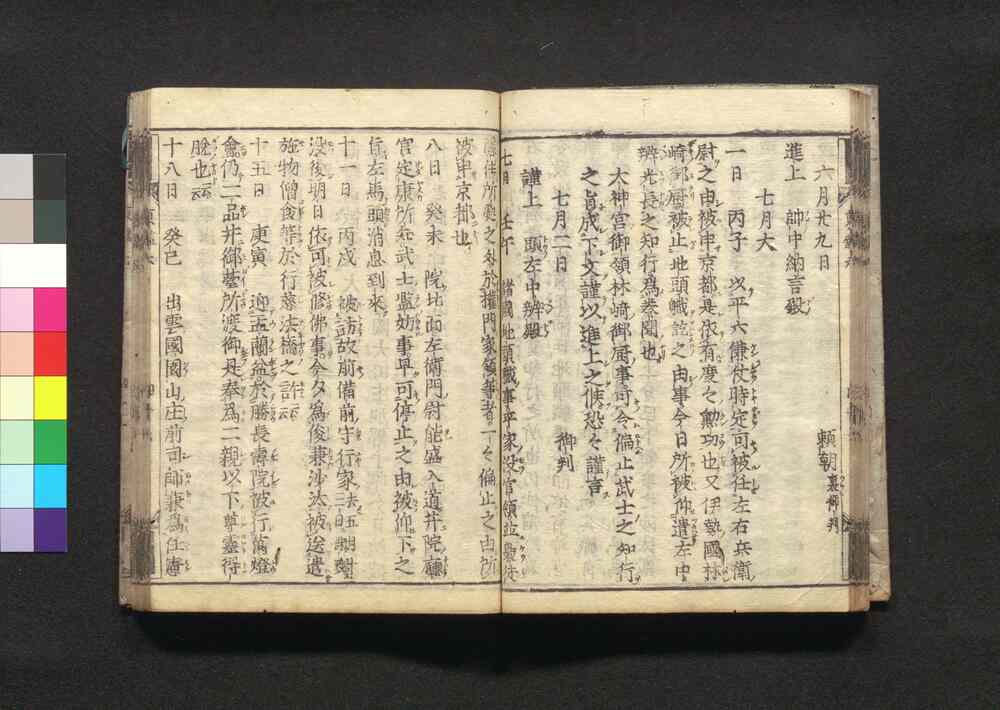 六月廿九日　頼朝裏御判
進上　帥中納言殿
七月大
一日　丙子　以平六傔仗時定可被任左右兵衛
尉之由被申京都是依有度々勲功也又伊勢國林
崎御厨被止地頭職訖之由事今日所被仰遣左中
辨光長之知行爲奏聞也
太神宮御領林崎御厨事可令偏止武士之知行
之旨成下文謹以進上之候恐々謹言
七月一日　御判
謹上　頭左中辨殿
七日　壬午　諸國地頭職事平家没官領并凶徒
隱住所處之外於權門家領等者一々偏止之由所
被申京都也
八日　癸未　院北面左衛門尉能盛入道并院廳
官定康所在武士濫妨事早可停止之由被仰下之
旨左馬頭消息到來
十一日　丙戌　人被訪故前備前守行家法伍瑚璉
没後明日依可被修佛事今夕為後兼沙汰被送遣
施物僧食等於行慈法橋之許云云
十五日　庚寅　迎盂蘭盆於勝長壽院被行萬燈
會仍二品并御臺所渡御是奉爲二親以下尊靈得
脱也云云
十八日　癸巳　出雲國園山庄前司師兼爲任憲